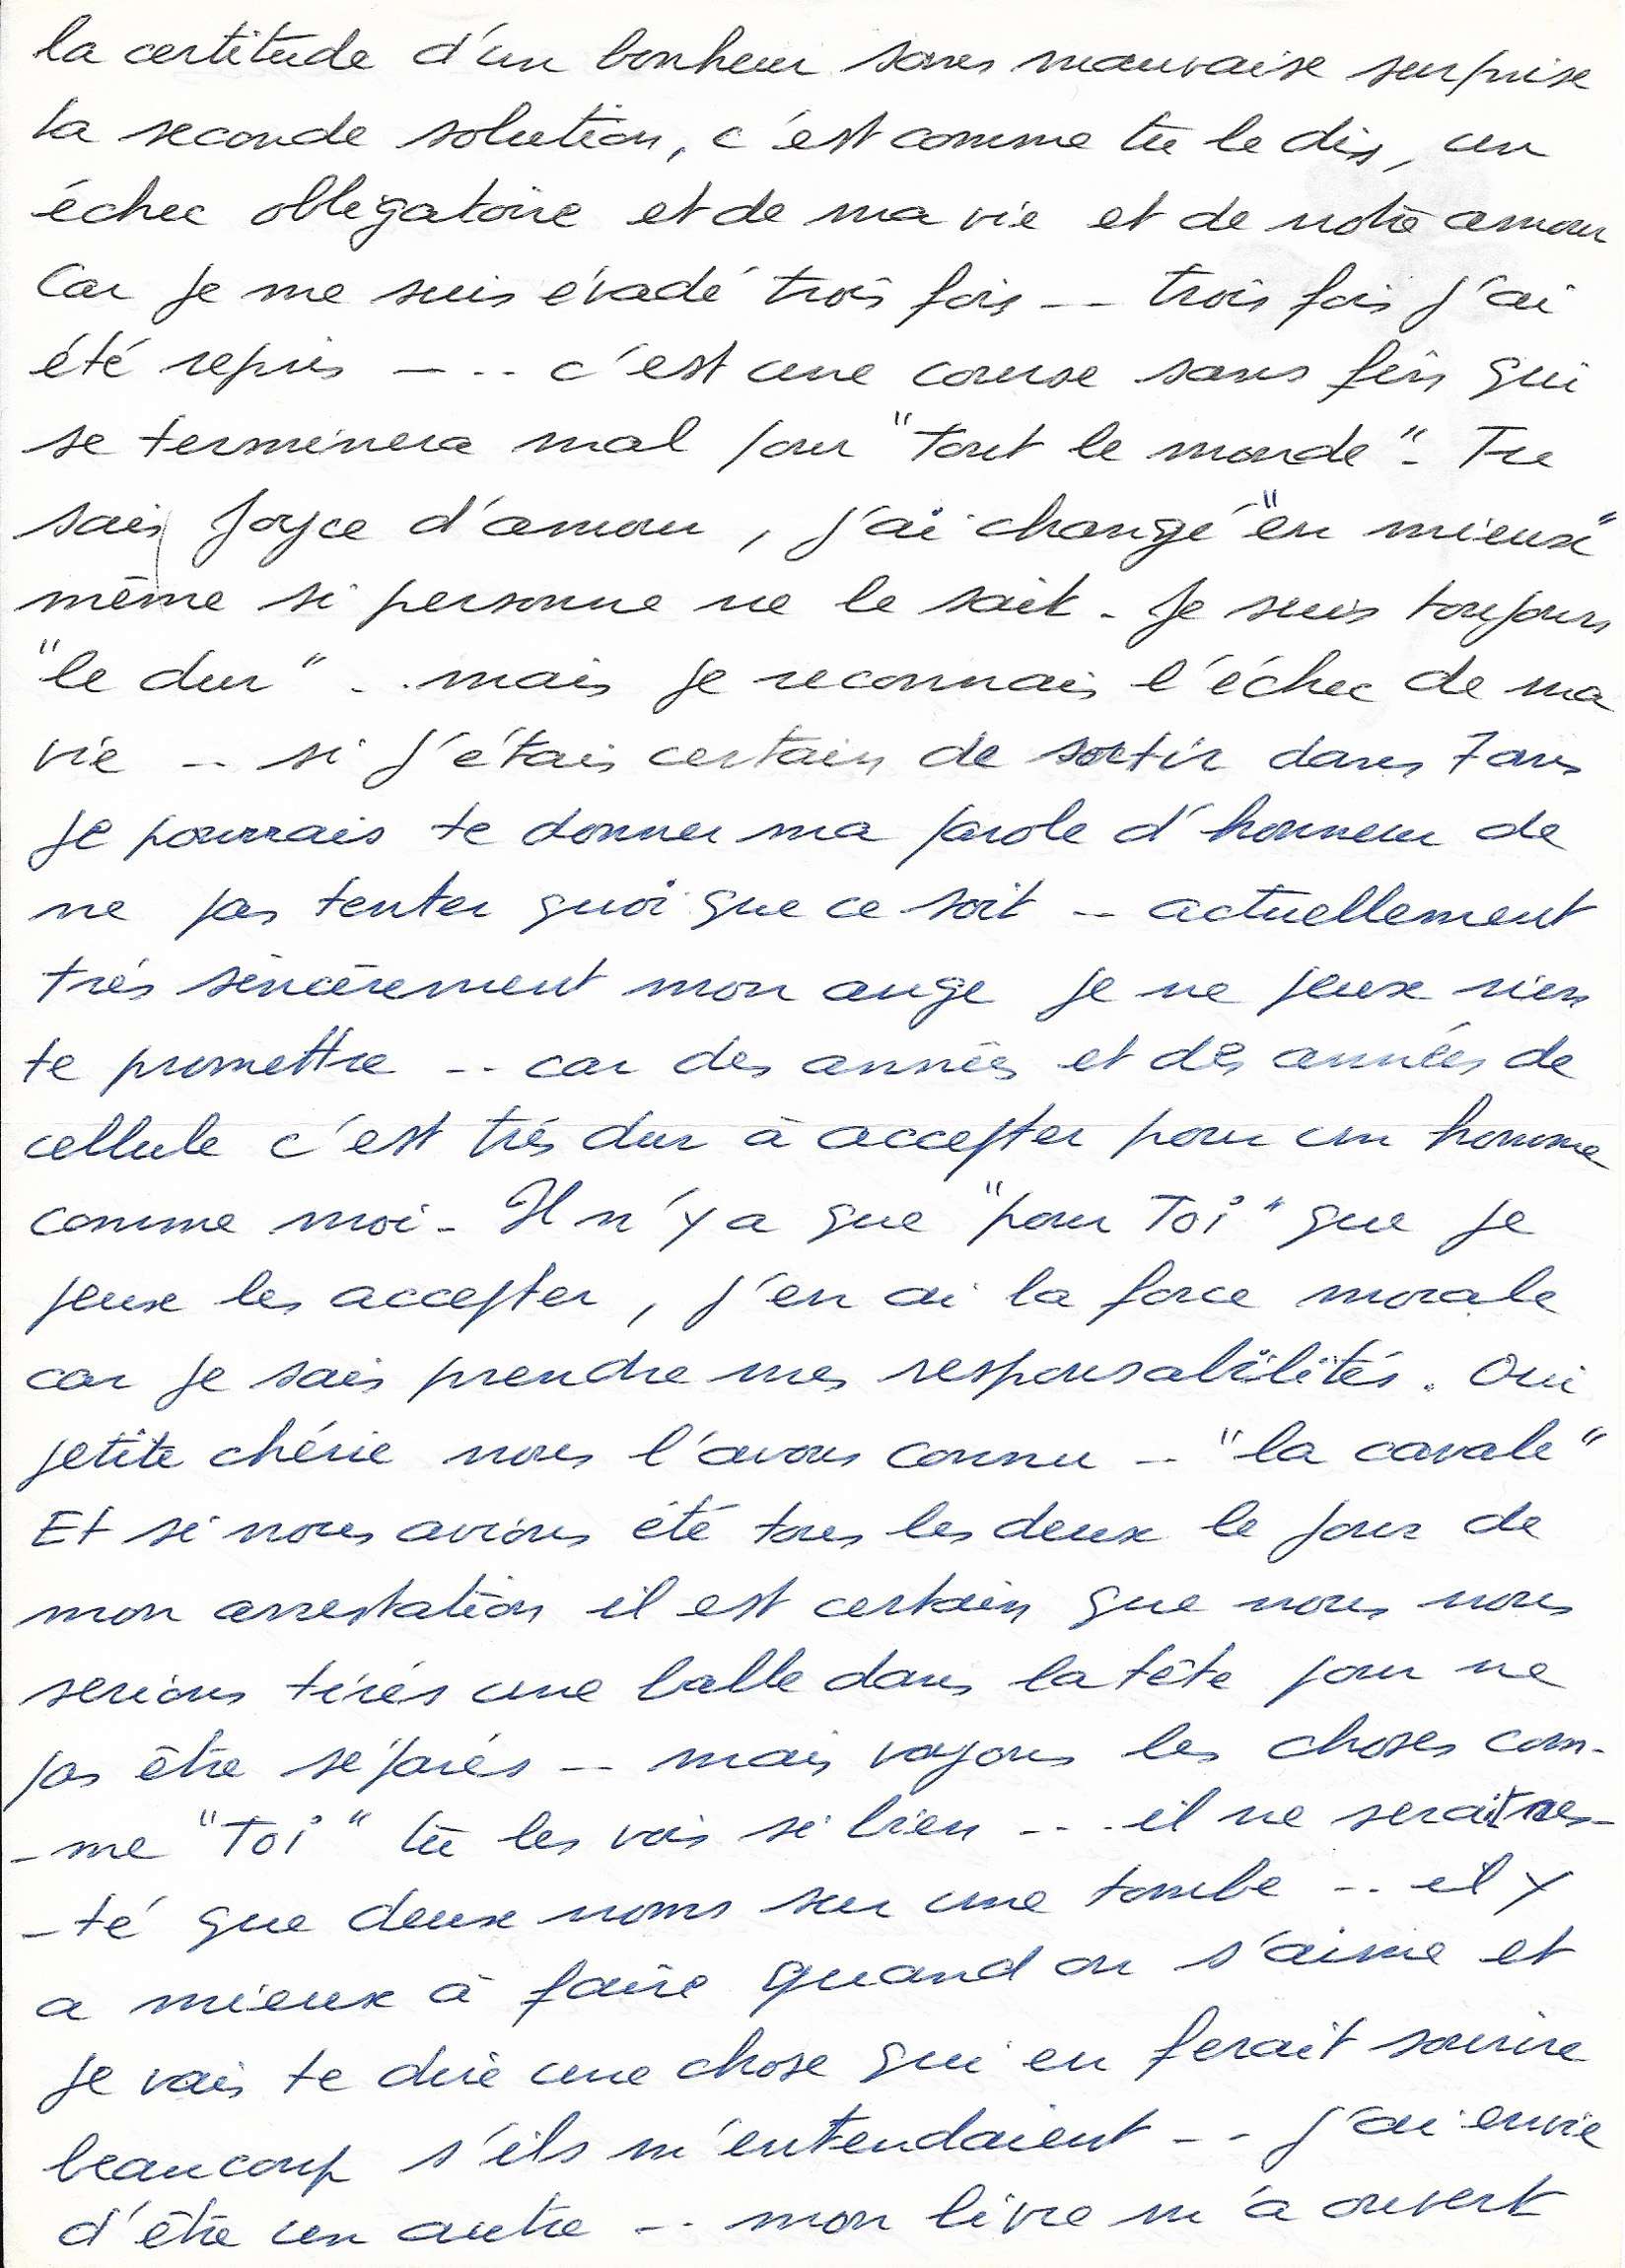 la certitude d'un bonheur sans mauvaise surprise
La seconde solution, c'est comme tu le dis, un
échec obligatoire et de ma vie et de notre amour
Car je me suis évadé trois fois -- trois fois j'ai
été repris --.. c'est une course sans fin qui
se terminera mal pour "tout le monde". Tu
sais Joyce d'amour, j'ai changé "en mieux"
même si personne ne le sait. Je suis toujours
"le dur" .. mais je reconnais l'échec de ma
vie -- si j'étais certain de sortir dans 7 ans
je pourrais te donner ma parole d'honneur de
ne pas tenter quoi que ce soit -- actuellement
très sincèrement mon ange je ne peux rien
te promettre -- car des années et des années de
cellule c'est très dur à accepter pour un homme
comme moi. Il n'y a que "pour Toi" que je
peux les accepter, j'en ai la force morale
car je sais prendre mes responsabilités. Oui
petite chérie nous l'avons connu -- "la cavale"
Et si nous avions été tous les deux le jour de
mon arrestation il est certain que nous nous
serions tirés une balle dans la tête pour ne
pas être séparés -- mais voyons les choses com-
-me "Toi" tu les vois si bien --. il ne serait res-
-té que deux noms sur une tombe -- il y
a mieux à faire quand on s'aime et
je vais te dire une chose qui en ferait sourire
beaucoup s'ils m'entendaient -- j'ai envie
d'être un autre -- mon livre m'a ouvert